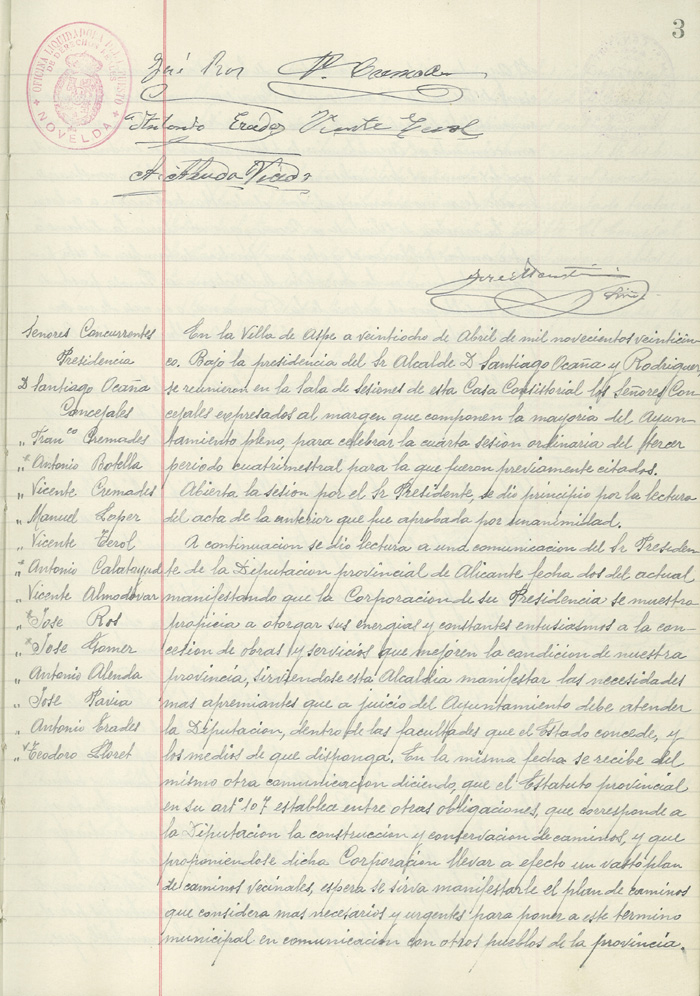 3
OFICINA LIQUIDADORA DEL IMPUESTO
DE DERECHOS REALES
NOVELDA
José Ros
Vte Cremades
Antonio Erades Vicente Terol
A. Alenda
José
Señores Concurrentes
Presidencia
D Santiago Ocaña
Concejales
" Franco Cremades
" Antonio Botella
" Vicente Cremades
" Manuel Loper
" Vicente Terol
" Antonio Calatayud
" Vicente Almodóvar
" Jose Ros
" Jose Gomer
" Antonio Alenda
" Jose
" Antonio Erades
" Teodoro Lloret
En la Villa de Aspe a veintiocho de Abril de mil novecientos veinticin
co. Bajo la presidencia del Sr Alcalde D Santiago Ocaña y Rodriguez
se reunieron en la Sala de sesiones de esta Casa Consistorial los Señores Con
cejales expresados al margen que componen la mayoria del Ayun-
tamiento pleno, para celebrar la cuarta sesion ordinaria del tercer
periodo cuatrimestral para la que fueron previamente citados.
Abierta la sesion por el Sr Presidente, se dio principio por la lectura
del acta de la anterior que fue aprobada por unanimidad.
A continuacion se dio lectura a una comunicacion del Sr Presiden
te de la Diputacion provincial de Alicante fecha dos del actual
manifestando que la Corporacion de su Presidencia se muestra
propicia a otorgar sus energias y constantes entusiasmos a la con-
cesion de obras y servicios que mejoren la condicion de nuestra
provincia, sirviendose esta Alcaldia manifestar las necesidades
mas apremiantes que a juicio del Ayuntamiento debe atender
la Diputacion, dentro de las facultades que el Estado concede, y
los medios de que disponga. En la misma fecha se recibe del
mismo otra comunicacion diciendo, que el Estatuto provincial
en su arto 107 establece entre otras obligaciones, que corresponde a
la Diputacion la construccion y conservacion de caminos, y que
proponiendose dicha Corporacion llevar a efecto un vasto plan
de caminos vecinales, espera se sirva manifestarle el plan de caminos
que considera mas necesarios y urgentes para poner a este termino
municipal en comunicacion con otros pueblos de la provincia.